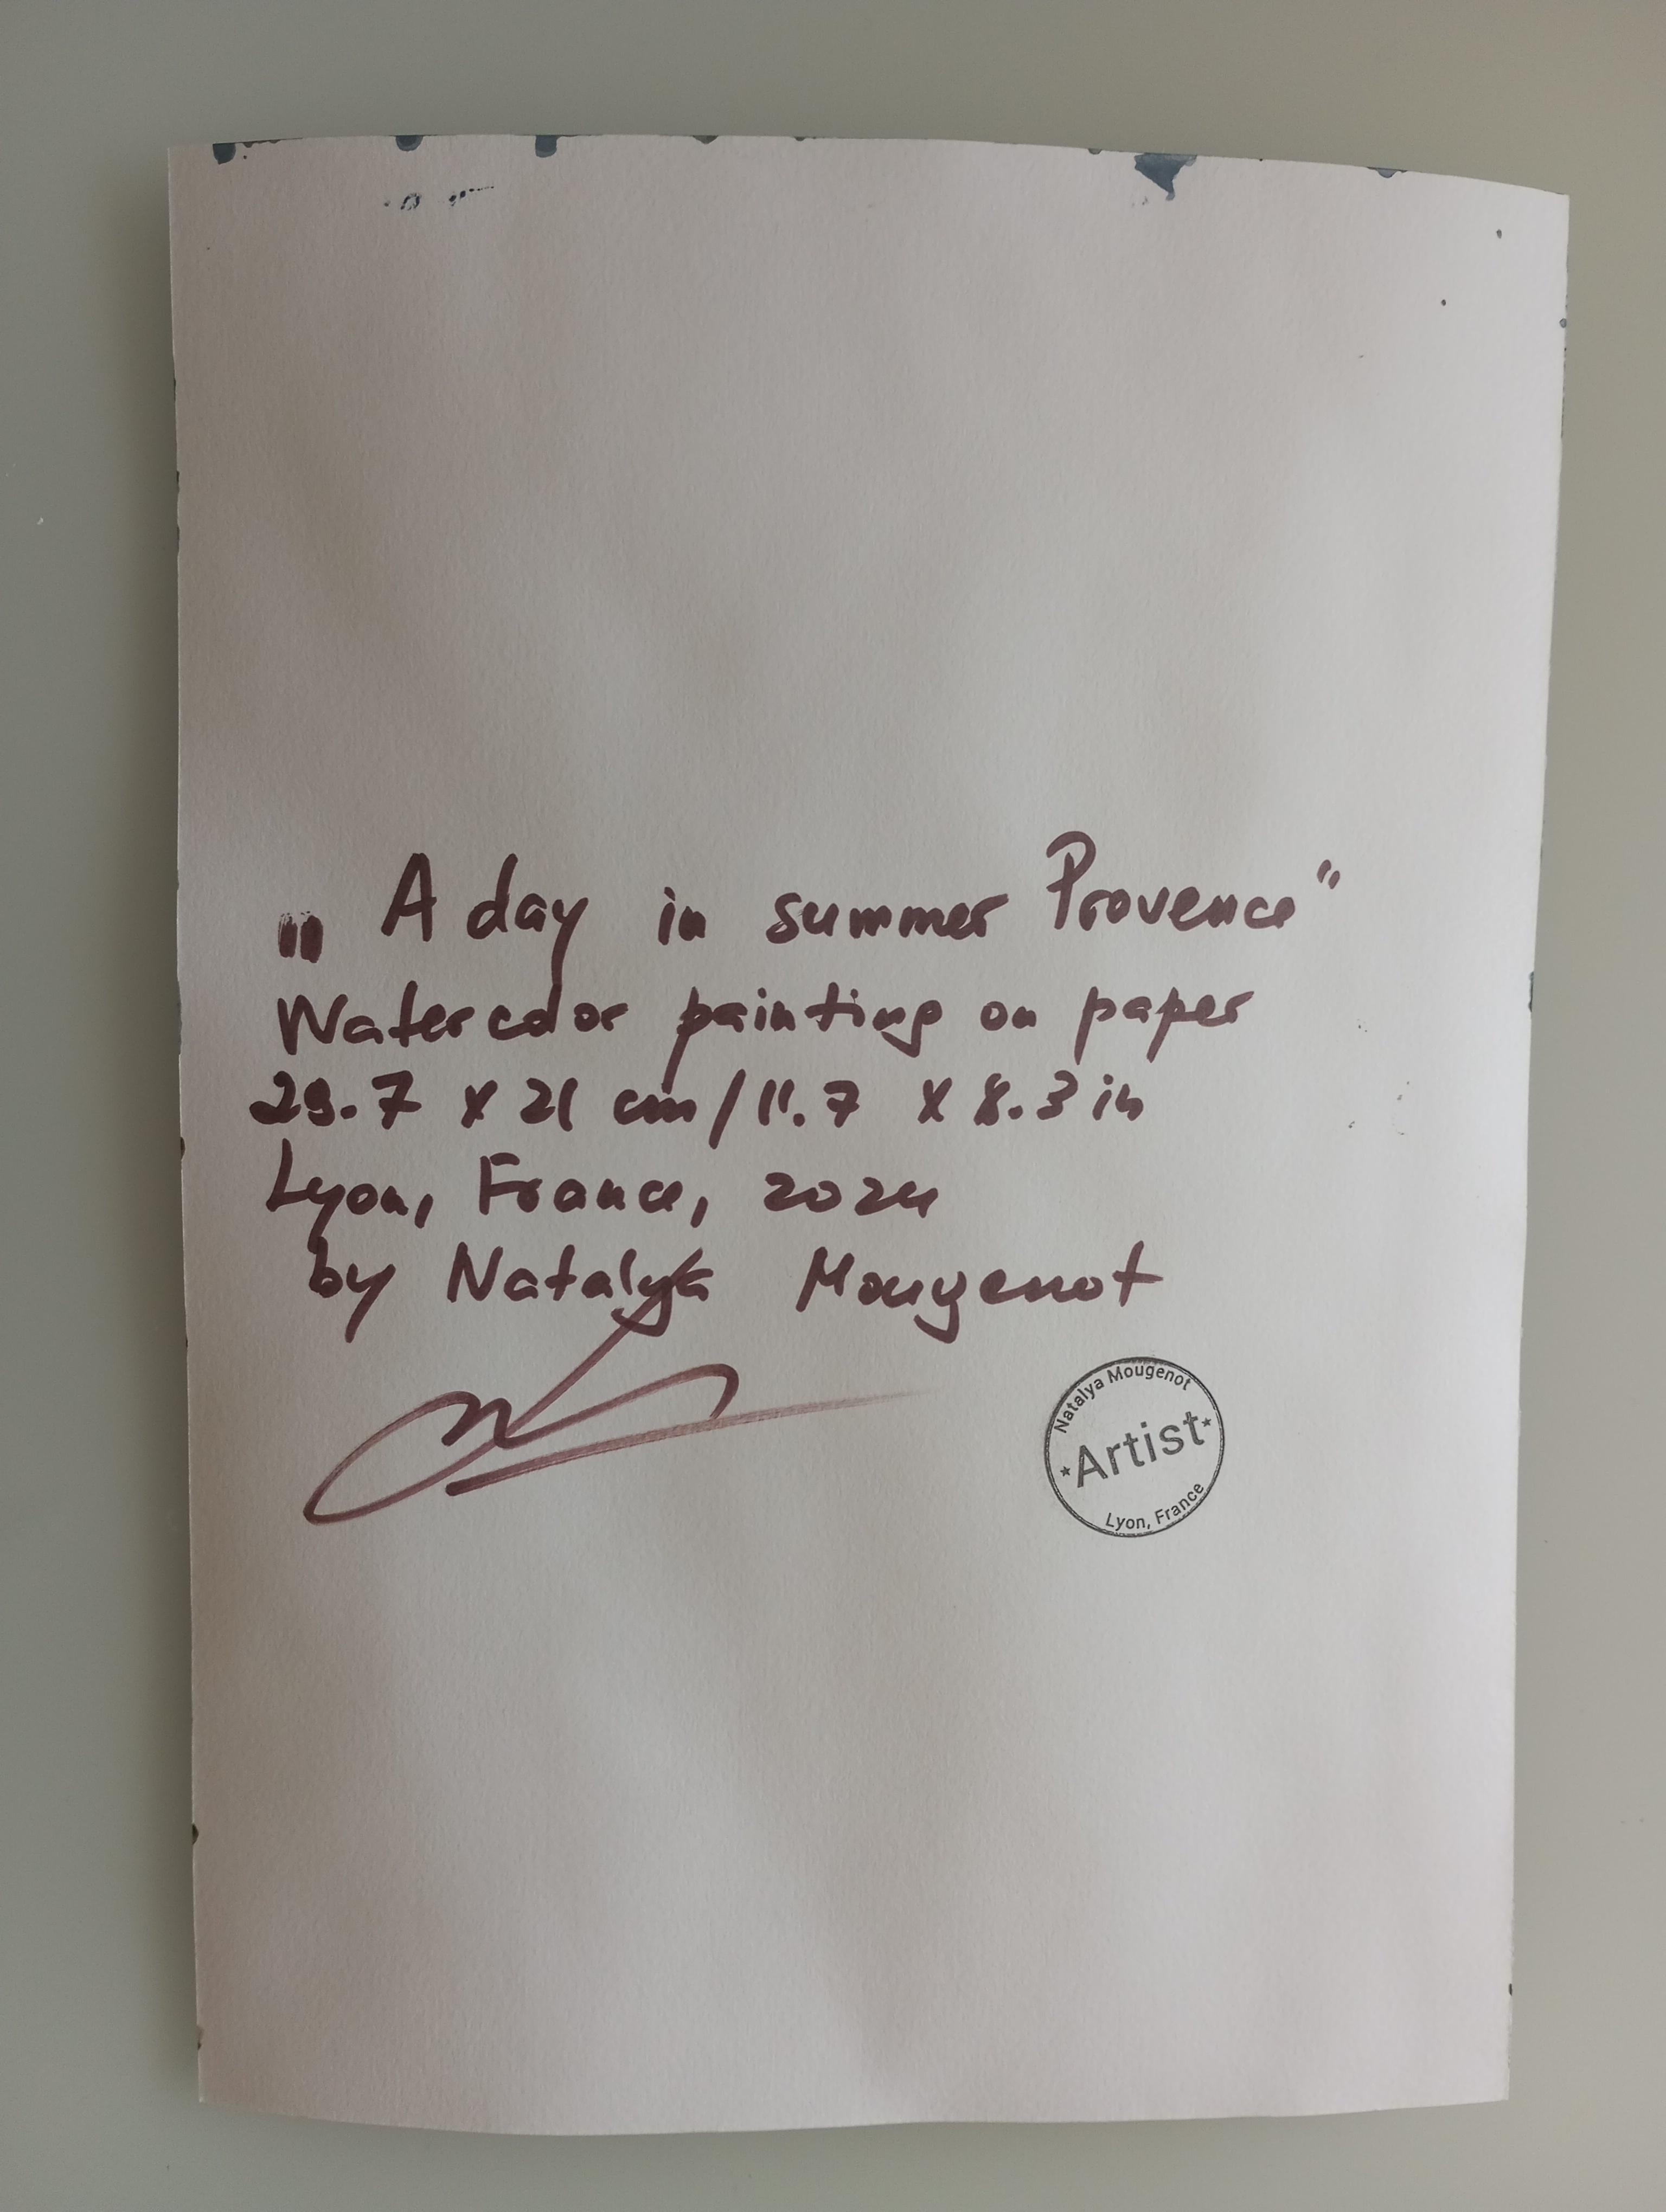 „A day in summer Provence"
Watercolor painting on paper
29.7 x 21 cm/11.7 x 8.3 in
Lyon, France, 2024
by Natalya Mougenot
Natalya Mougenot
*Artist*
Lyon, France